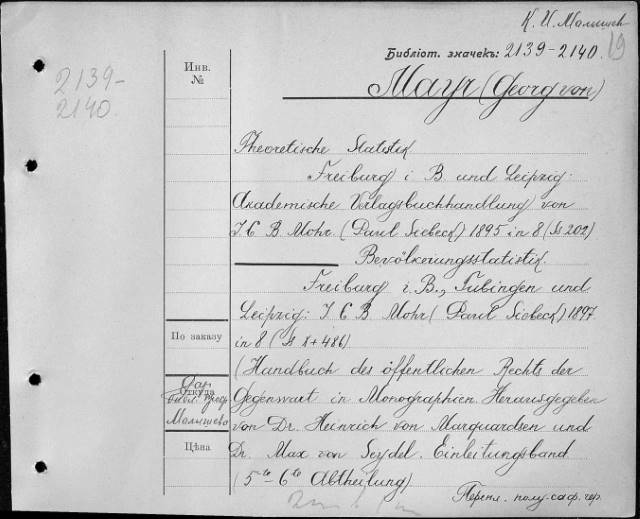 К. И. Малышев
Библіот. значекъ: 2139-2140.
19
2139-
2140.
Инв.
№
Mayr (Georg von)
Theoretische Statistik
Freiburg i B. und Leipzig.
Akademische Verlagsbuchhandlung von
J. C B. Mohr. (Paul Siebeck) 1895 in 8 (Ss 202)
Bevölkerungsstatistik.
Freiburg i. B., Tübingen und
Leipzig: J C B Mohr (Paul Siebeck) 1897
По заказу
in 8 (Ss X+486)
(Handbuch des öffentlichen Rechts der
Дар
Откуда
библ. проф
Малышева
Gegenwart in Monographien. Herausgegeben
von Dr. Heinrich von Marquardsen und
Цѣна
Dr. Max von Seydel. Einleitungsband
(5te-6te Abtheilung)
Перепл. полу-саф. чер.